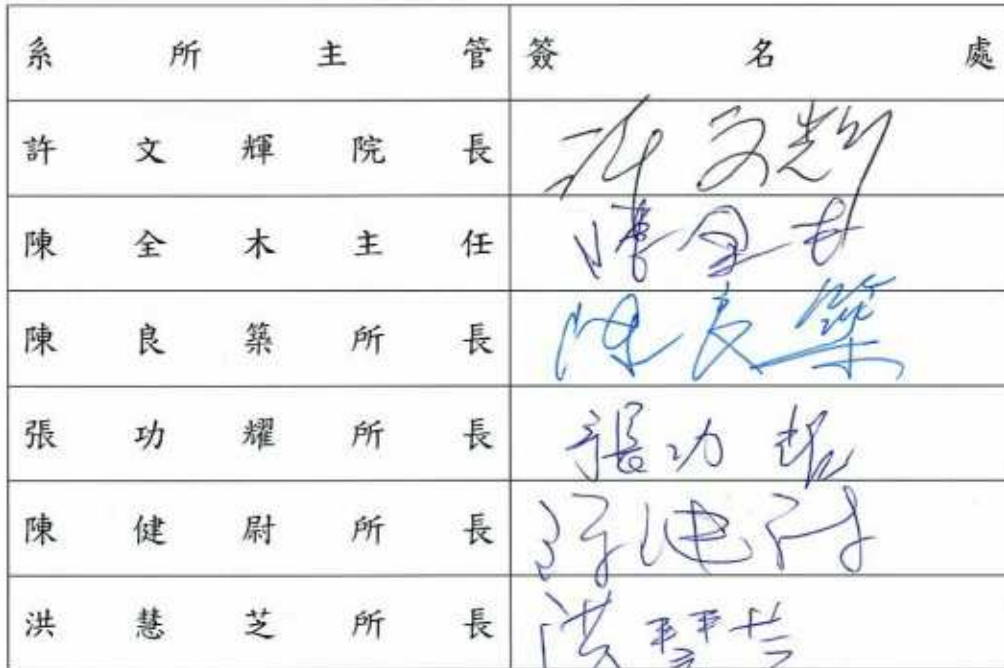 系所主管 簽名處
許文輝院長 許文輝
陳全木主任 陳全木
陳良築所長 陳良築
張功耀所長 張功耀
陳健尉所長 陳健尉
洪慧芝所長 洪慧芝